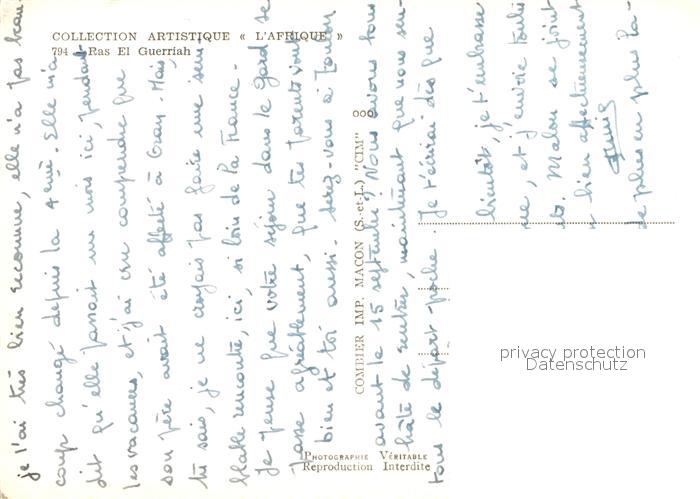 COLLECTION ARTISTIQUE « L'AFRIQUE »
794 - Ras El Guerriah
je l'ai très bien reconnue, elle n'a pas beau-
coup changé depuis la 4ème. Elle m'a
dit qu'elle passait un mois ici, pendant
les vacances, et j'ai cru comprendre que
son père avait été affecté à Oran. Mais,
tu sais, je ne croyais pas faire une sem-
blable rencontre, ici, si loin de la France.
Je pense que votre séjour dans le Gard se
passe agréablement, que tes parents vont
bien et toi aussi. Serez-vous à Toulon
avant le 15 septembre? Nous avons tous
hâte de rentrer, maintenant que nous sen-
tons le départ proche. Je t'écrirai dès que
COMBIER IMP. MACON (S.-et-L.) "CIM"
bientôt, je t'embrasse
et j'envoie toutes
Malou se joint
bien affectueusement
de plus en plus
PHOTOGRAPHIE VÉRITABLE
Reproduction Interdite
privacy protection
Datenschutz